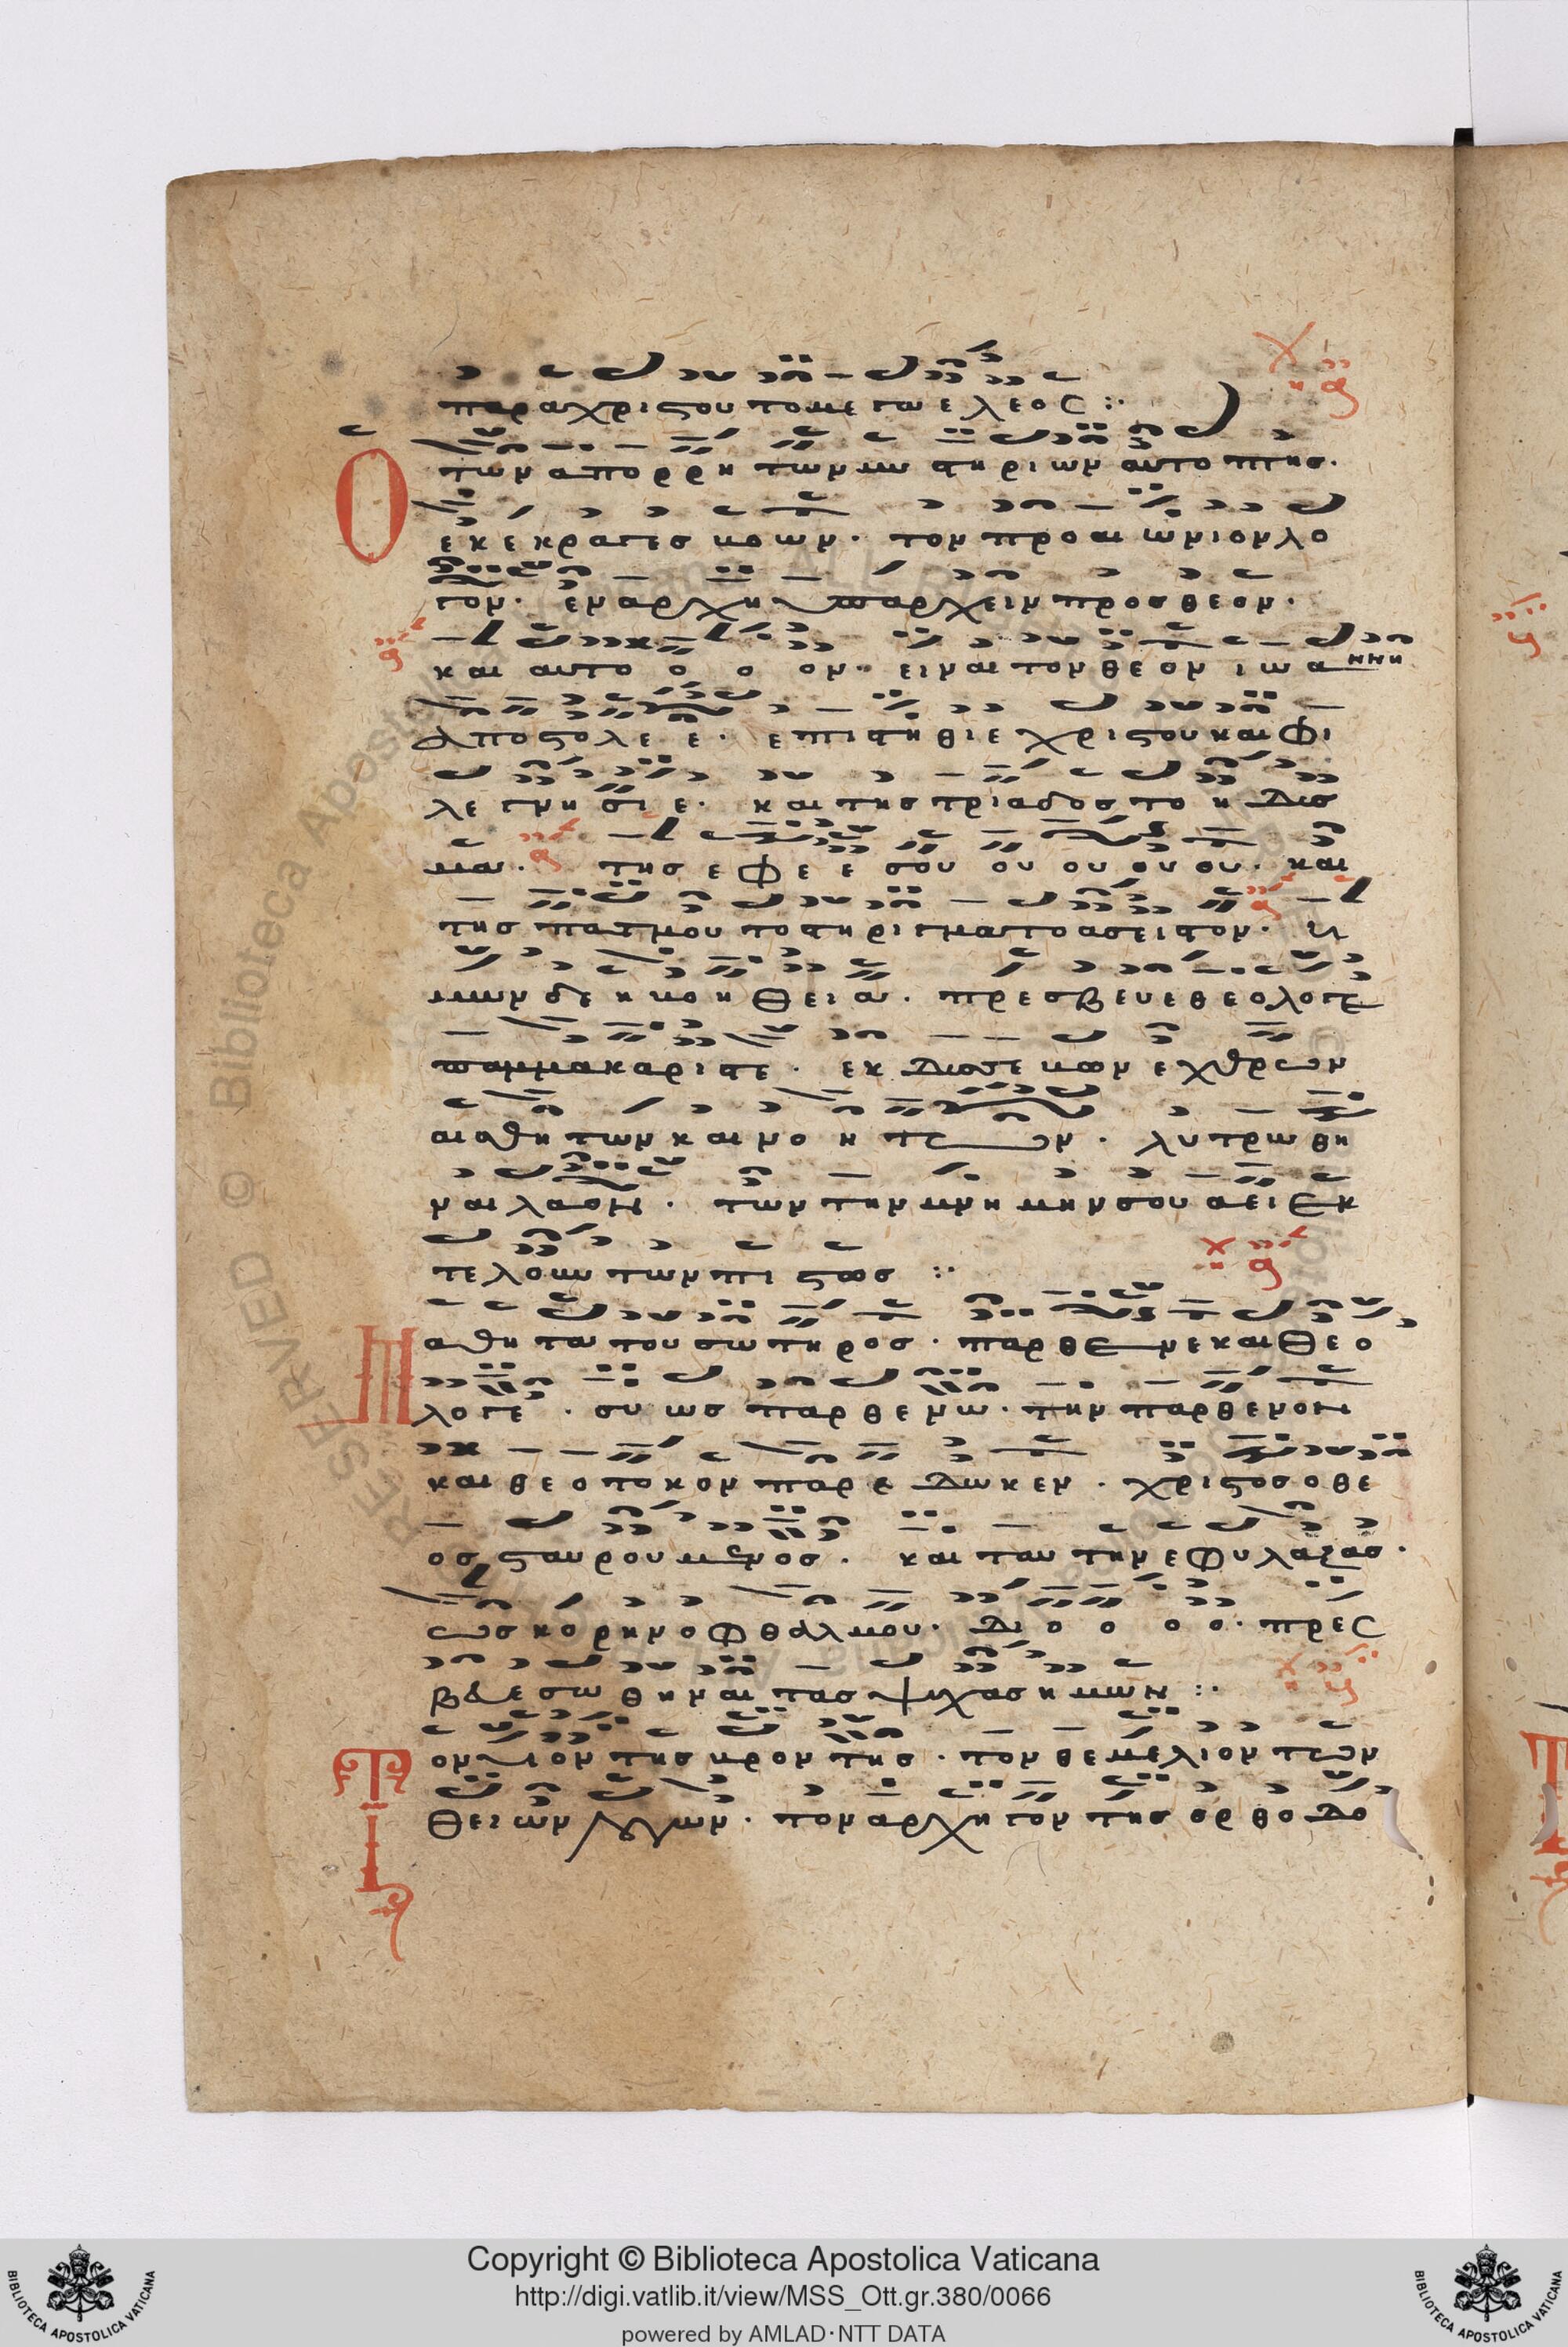 παρα χριστου το μεγα ελεος :·
Ο των απορρητων μυστηριων αυτοπτης·
εκεκραγες βοων· τον προαιωνιον λο
γον· εν αρχη υπαρχειν προς θεον·
και αυτο ο ο ον· ειναι τον θεον ιωαννη
αποστολε ε· επιστηθιε χριστου και φι
λε γνησιε· και της τριαδος το ηδυσ
μα· της εφεεσου ου ου ου ου· και
της πατμου το στηριγμα το ασειστον· η
μων δε η βοηθεια· πρεσβευε θεολογε
παμμακαριστε· εκ δυσσεβων εχθρων
αισθητων και νοητων· λυτρωθη
ναι λαον· των την μνημην σου αει εκ
τελουντων πιστως :·
Μ αθητα του σωτηρος· παρθενε και θεο
λογε· συ ως παρθενω· την παρθενον
και θεοτοκον παρεδωκεν· χριστος ο θε
ος σταυρουμενος· και ταυτην εφυλαξας·
ως κορην οφθαλμου· διο ο ο ο· πρεσ
βευε σωθηναι τας ψυχας ημων :·
Τ ον υιον της βροντης· τον θεμελιον των
θειων λογων· τον αρχηγον της ορθοδο
Copyright © Biblioteca Apostolica Vaticana
http://digi.vatlib.it/view/MSS_Ott.gr.380/0066
powered by AMLAD·NTT DATA